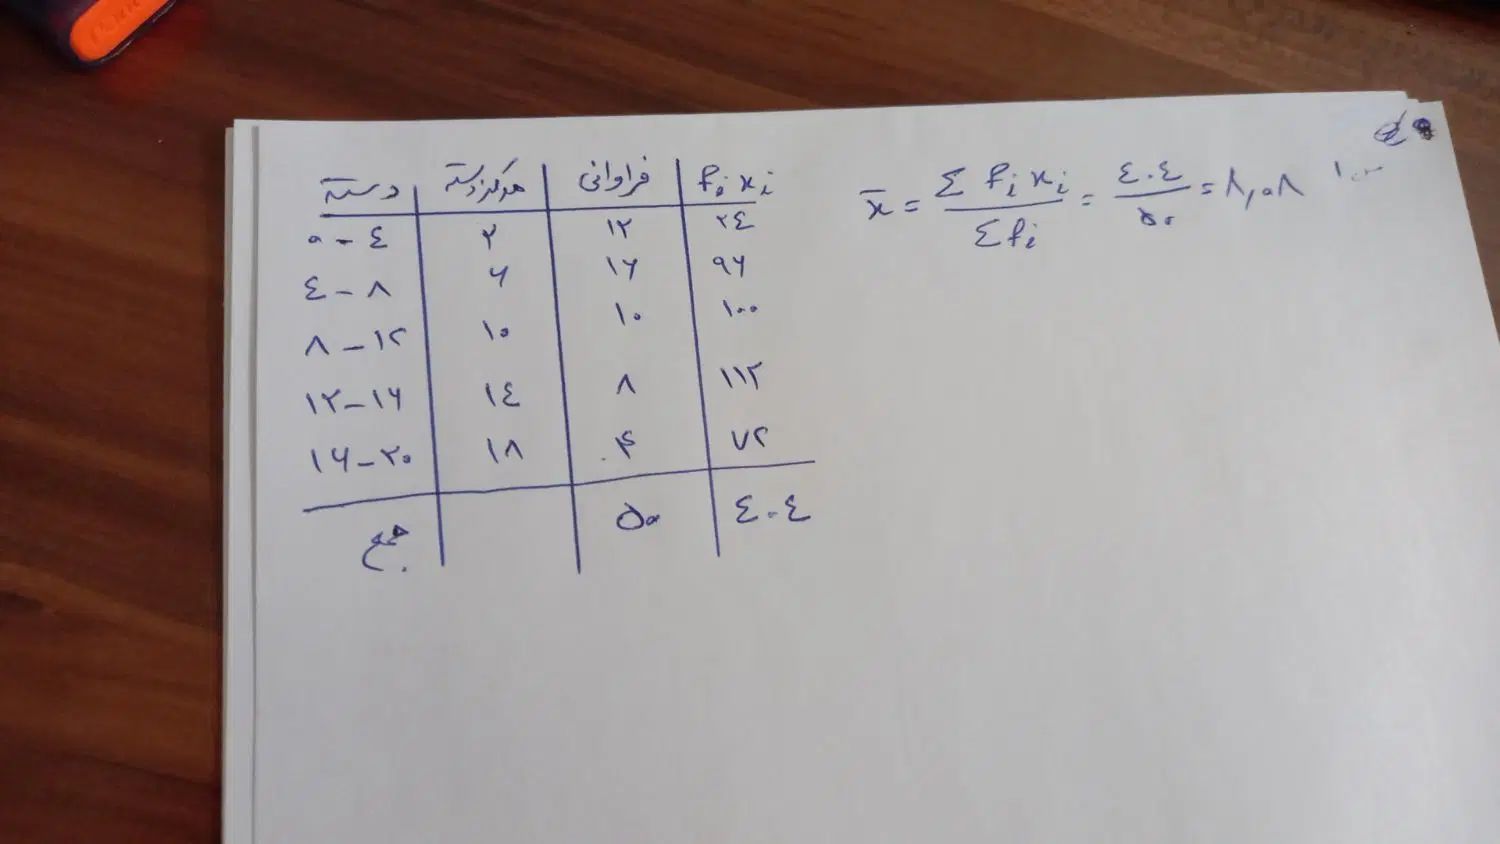 دسته | مرکز دسته | فراوانی | fᵢ xᵢ
۰ - ٤ | ۲ | ۱۲ | ۲٤
٤ - ۸ | ۶ | ۱۶ | ۹۶
۸ - ۱۲ | ۱۰ | ۱۰ | ۱۰۰
۱۲ - ۱۶ | ۱٤ | ۸ | ۱۱۲
۱۶ - ۲۰ | ۱۸ | ۴ | ۷۲
جمع | | ۵۰ | ٤۰٤
x̄ = Σ fᵢ xᵢ / Σ fᵢ = ٤۰٤ / ۵۰ = ۸,۰۸